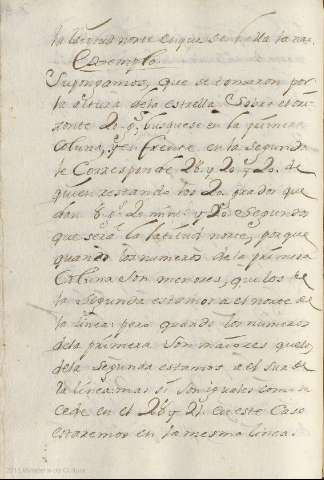 la latitud norte en que se halla la nao
Exemplo
Supongamos, que se tomaron por
la altura de la estrella sobre el ori
zonte 20. g.s busquese en la primera
coluna, y en frente en la segunda
le corresponde 28. y 20. y 20. de
quien restando los 20. grados que
dan 8. g.s 20. min.s y 20. segundos
que será la latitud norte, porque
quando los numeros de la primera
coluna son menores, que los de
la segunda estamos a el norte de
la linea: pero quando los numeros
de la primera son maiores que los
de la segunda estamos a el sur de
la linea, mas si son iguales como su
cede en el 26. y 27. en este caso
estaremos en la mesma linea.
2011 Ministerio de Cultura